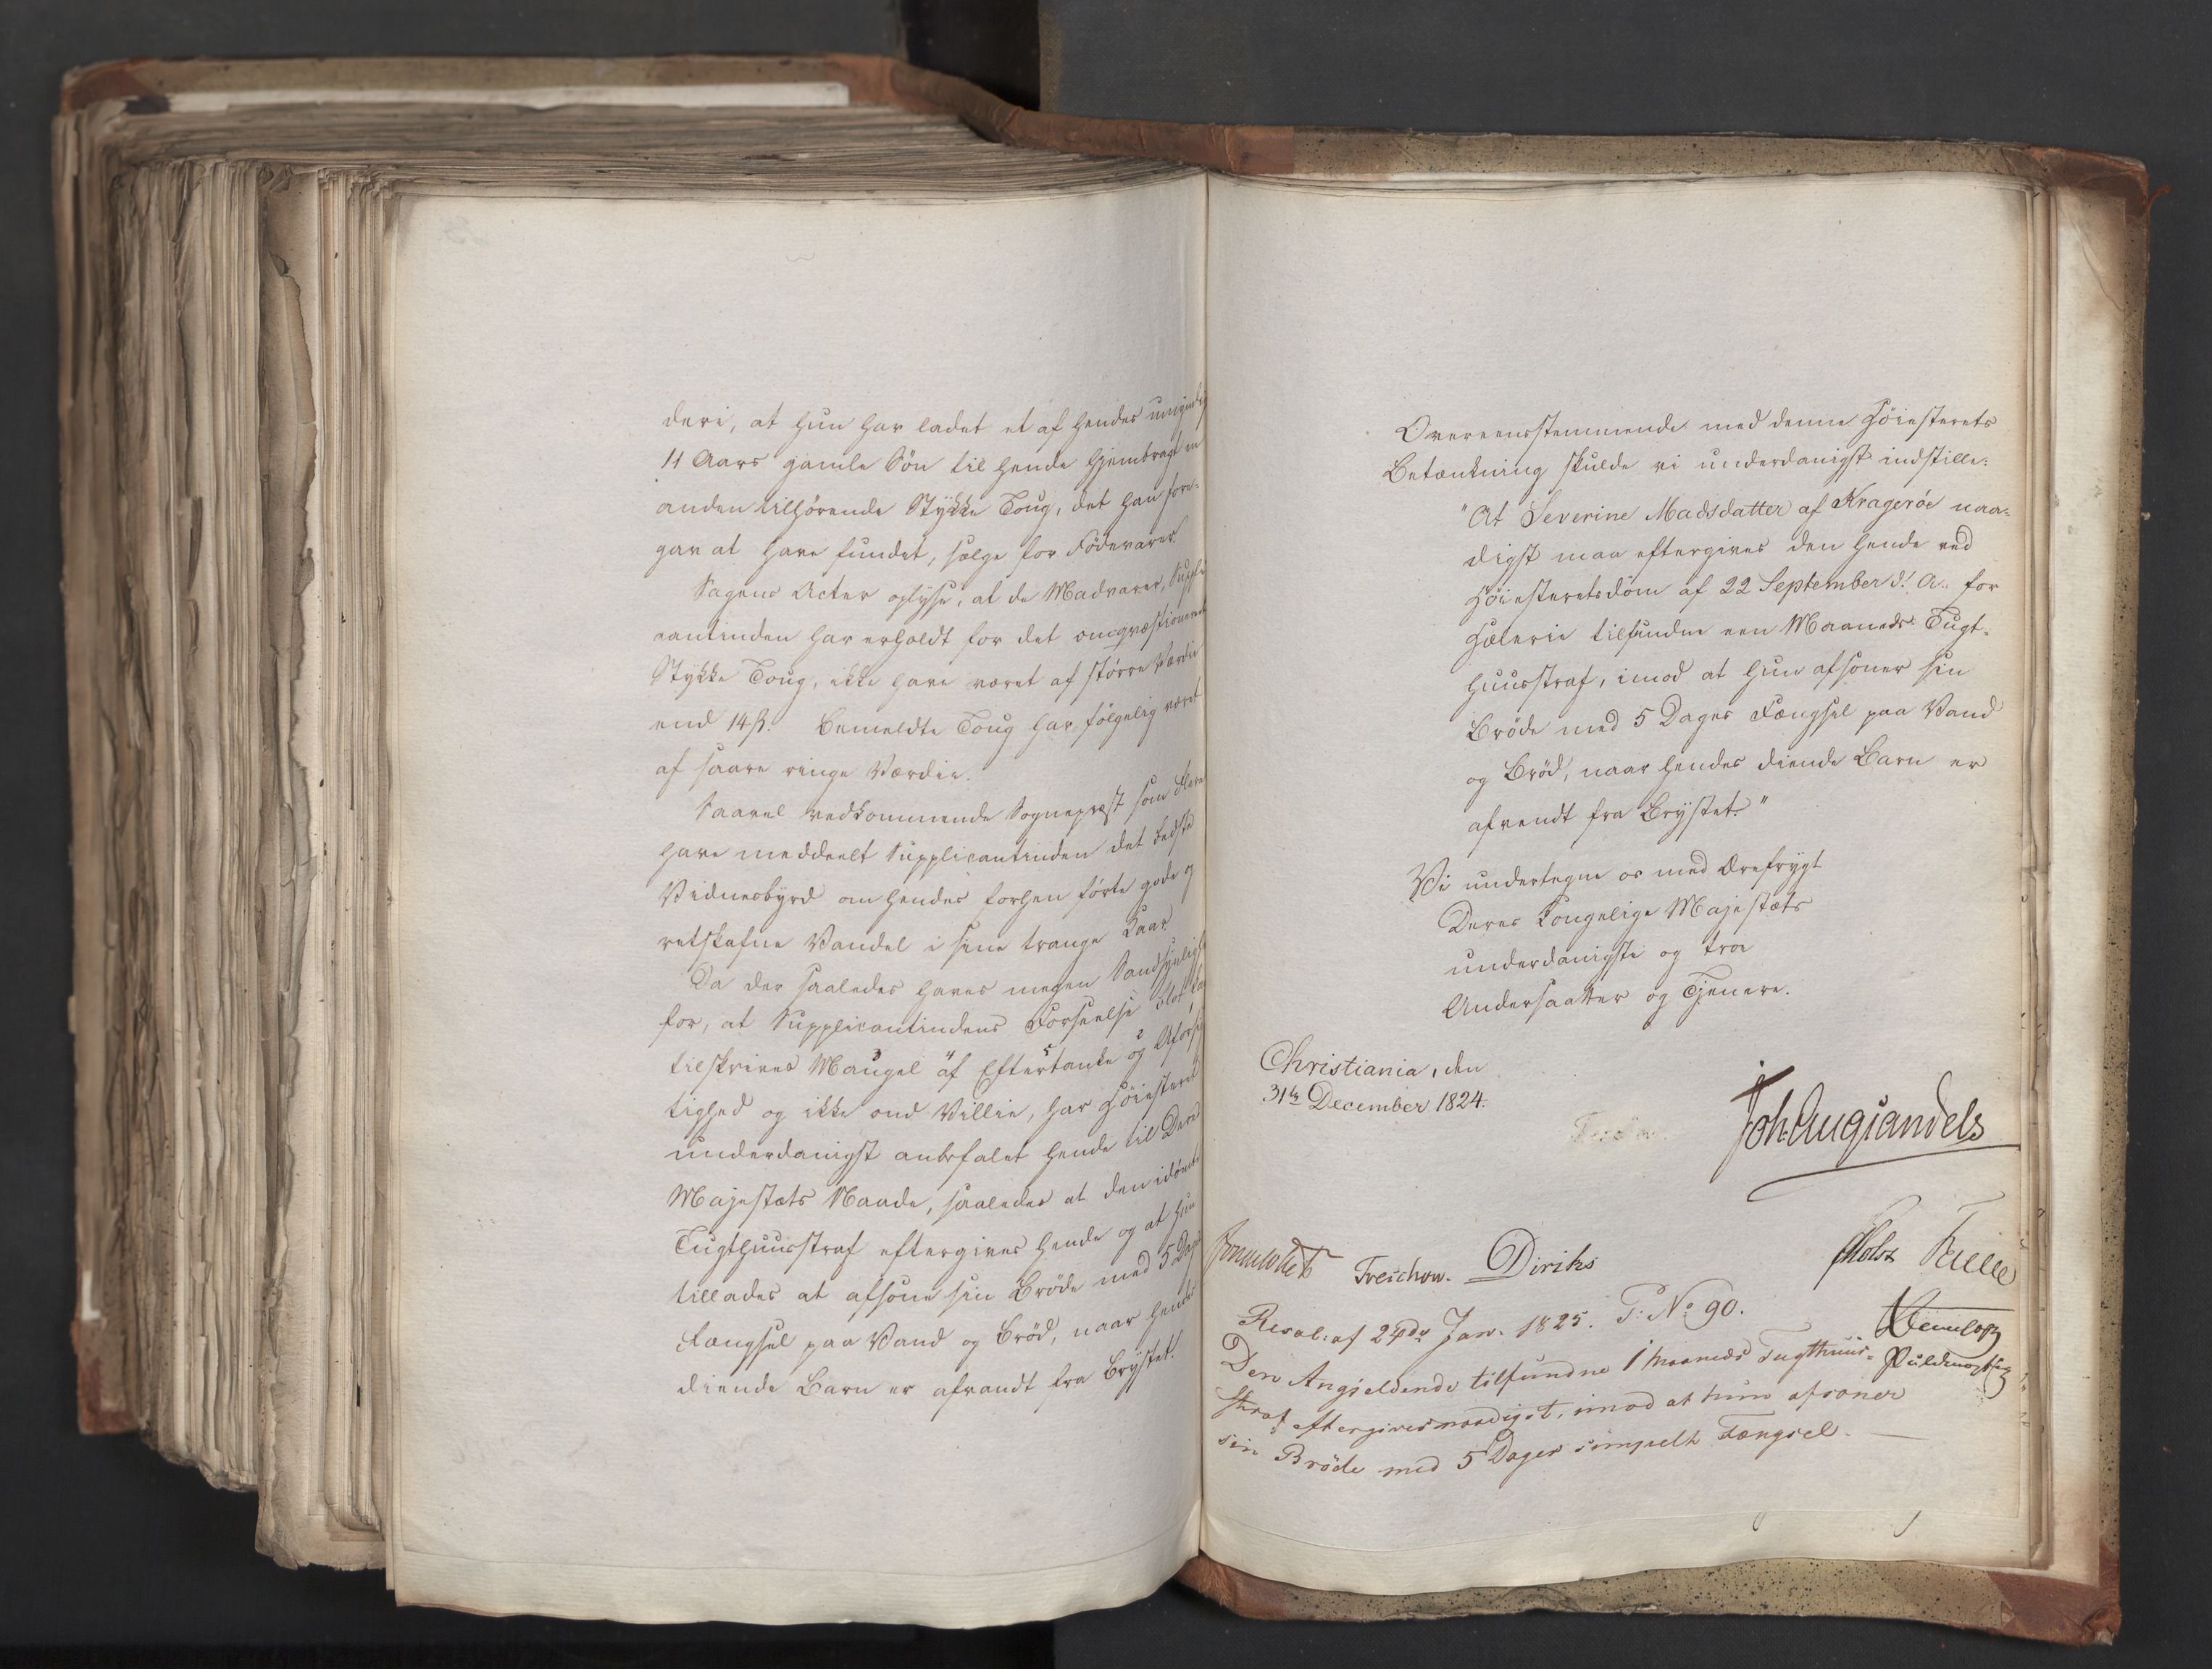 deri, at hun har ladet et af hendes
11 Aars gamle Søn til hende hjembragt en
anden tilhørende Stykke Toug, det han fore-
gav at have fundet, sælge for Fødevarer.
Sagens Acter oplyse, at de Madvarer, Suppli
cantinden har erholdt for det omqvæstionerede
Stykke Toug, ikke have været af større Værdie
end 14 ß. Bemeldte Toug har følgelig været
af saare ringe Værdie.
Saavel vedkommende Sognepræst som Flere
have meddeelt Supplicantinden det bedste
Vidnesbyrd om hendes forhen førte gode og
retskafne Vandel i sine trange Kaar.
Da der saaledes haves megen Sandsynlighed
for, at Supplicantindens Forseelse blot kan
tilskrives Mangel af Eftertanke og Uforsig
tighed og ikke ond Villie, har Høiesteret
underdanigst anbefalet hende til Deres
Majestæts Naade, saaledes at den idømte
Tugthuusstraf eftergives hende og at hun
tillades at afsone sin Brøde med 5 Dages
Fængsel paa Vand og Brød, naar hendes
diende Barn er afvandt fra Brystet.
Overeensstemmende med denne Høiesterets
Betænkning skulde vi underdanigst indstille:
"At Severine Madsdatter af Kragerøe naa-
digst maa eftergives den hende ved
Høiesteretsdom af 22 September d. A. for
Hælerie tilfundne een Maaneds Tugt-
huusstraf, imod at hun afsoner sin
Brøde med 5 Dages Fængsel paa Vand
og Brød, naar hendes diende Barn er
afvendt fra Brystet."
Vi undertegne os med Ærefrygt
Deres Kongelige Majestæts
underdanigste og troe
Undersaatter og Tjenere.
Christiania, den
31te December 1824.
Joh Aug Sandels
Sommerhielm Treschow. Diriks Holst Krell
Resol: af 24de Jan. 1825. P: No 90.
Den Angjeldende tilfundne 1 Maaneds Tugthuus-
straf eftergives naadigst, imod at hun afsoner
sin Brøde med 5 Dages simpelt Fængsel.